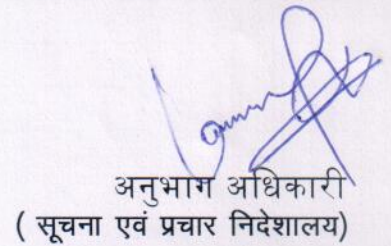 अनुभाग अधिकारी
( सूचना एवं प्रचार निदेशालय)